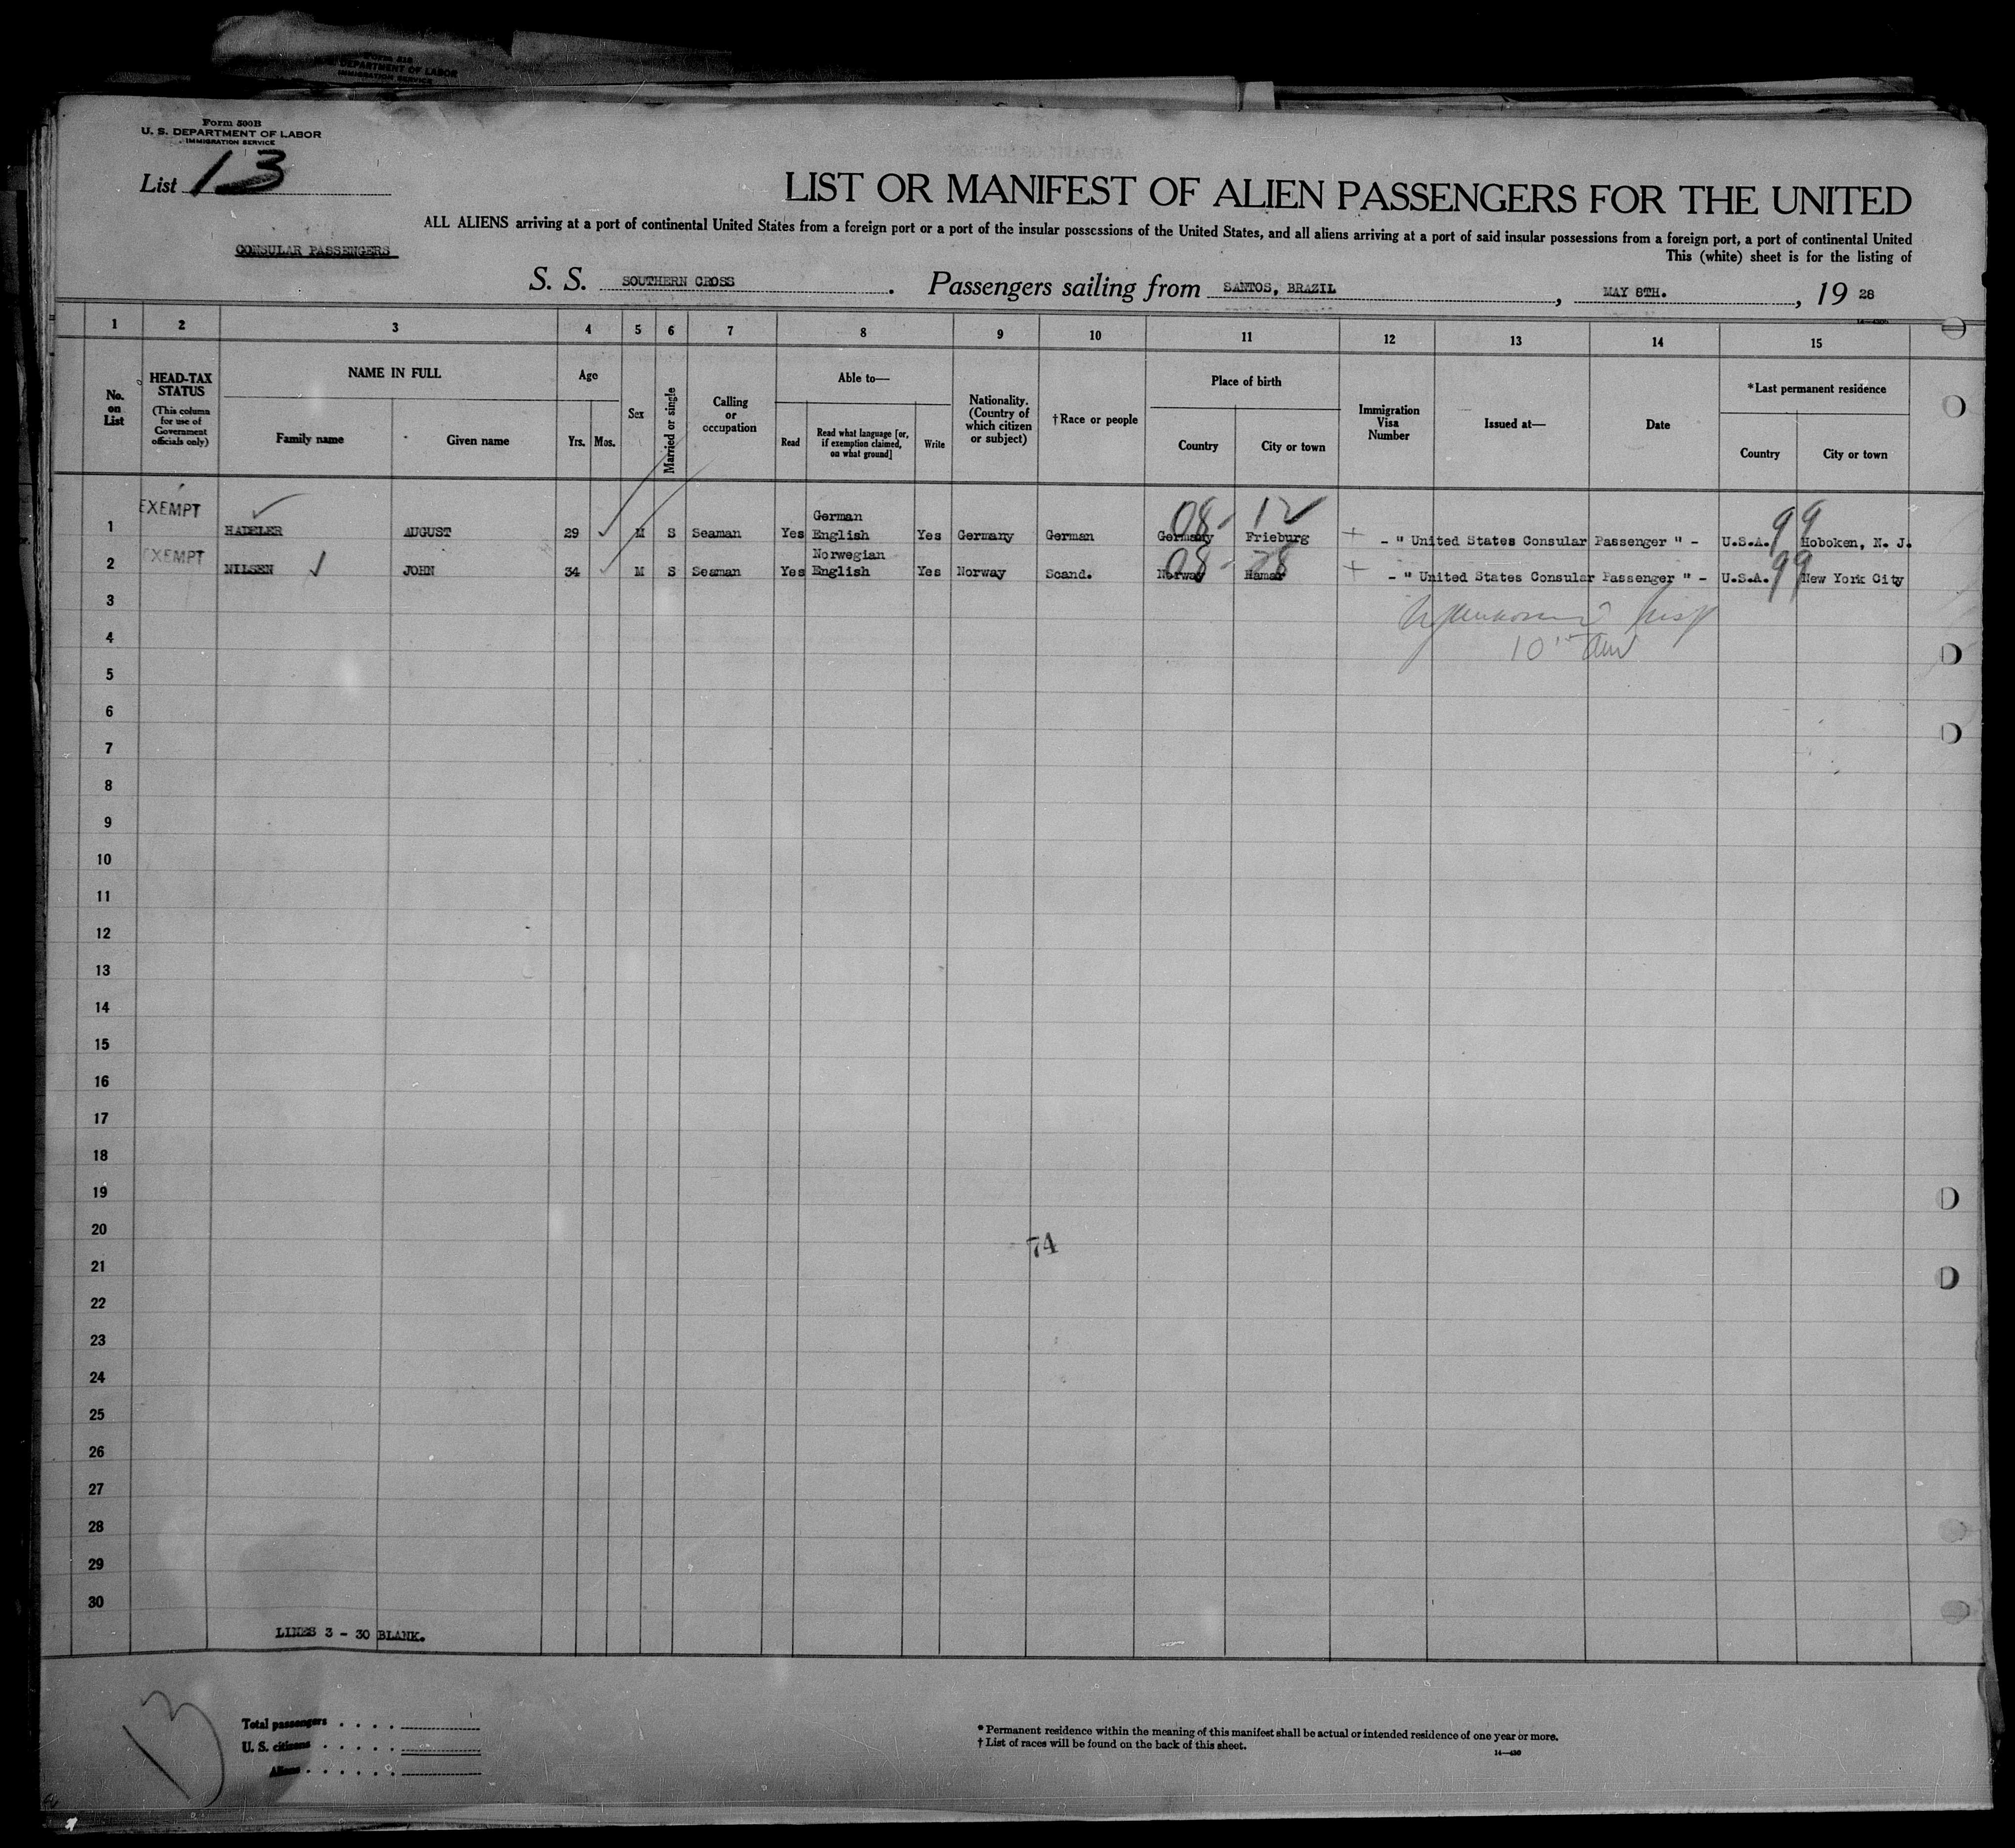 Form 500B
U. S. DEPARTMENT OF LABOR
IMMIGRATION SERVICE
List 13
LIST OR MANIFEST OF ALIEN PASSENGERS FOR THE UNITED
ALL ALIENS arriving at a port of continental United States from a foreign port or a port of the insular possessions of the United States, and all aliens arriving at a port of said insular possessions from a foreign port, a port of continental United
This (white) sheet is for the listing of
CONSULAR PASSENGERS
S. S. SOUTHERN CROSS. Passengers sailing from SANTOS, BRAZIL, MAY 8TH., 19 28
1 2 3 4 5 6 7 8 9 10 11 12 13 14 15
No. on List
HEAD-TAX STATUS
(This column for use of Government officials only)
NAME IN FULL
Family name
Given name
Age
Yrs. Mos.
Sex
Married or single
Calling or occupation
Able to—
Read
Read what language [or, if exemption claimed, on what ground]
Write
Nationality. (Country of which citizen or subject)
†Race or people
Place of birth
Country
City or town
Immigration Visa Number
Issued at—
Date
*Last permanent residence
Country
City or town
EXEMPT German 08- 12 99
1 HADELER AUGUST 29 M S Seaman Yes English Yes Germany German Germany Frieburg - " United States Consular Passenger " - U.S.A. Hoboken, N. J.
EXEMPT Norwegian 08- 28 99
2 NILSEN JOHN 34 M S Seaman Yes English Yes Norway Scand. Norway Hamar - " United States Consular Passenger " - U.S.A. New York City
3
4
5
6
7
8
9
10
11
12
13
14
15
16
17
18
19
20
74
21
22
23
24
25
26
27
28
29
30
LINES 3 - 30 BLANK.
13
Total passengers . . . .
U. S. citizens . . . . .
Aliens . . . . . .
* Permanent residence within the meaning of this manifest shall be actual or intended residence of one year or more.
† List of races will be found on the back of this sheet.
14—430